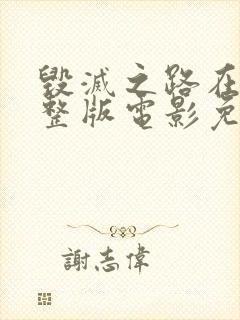 毀滅之路在
整版電影免
謝志偉